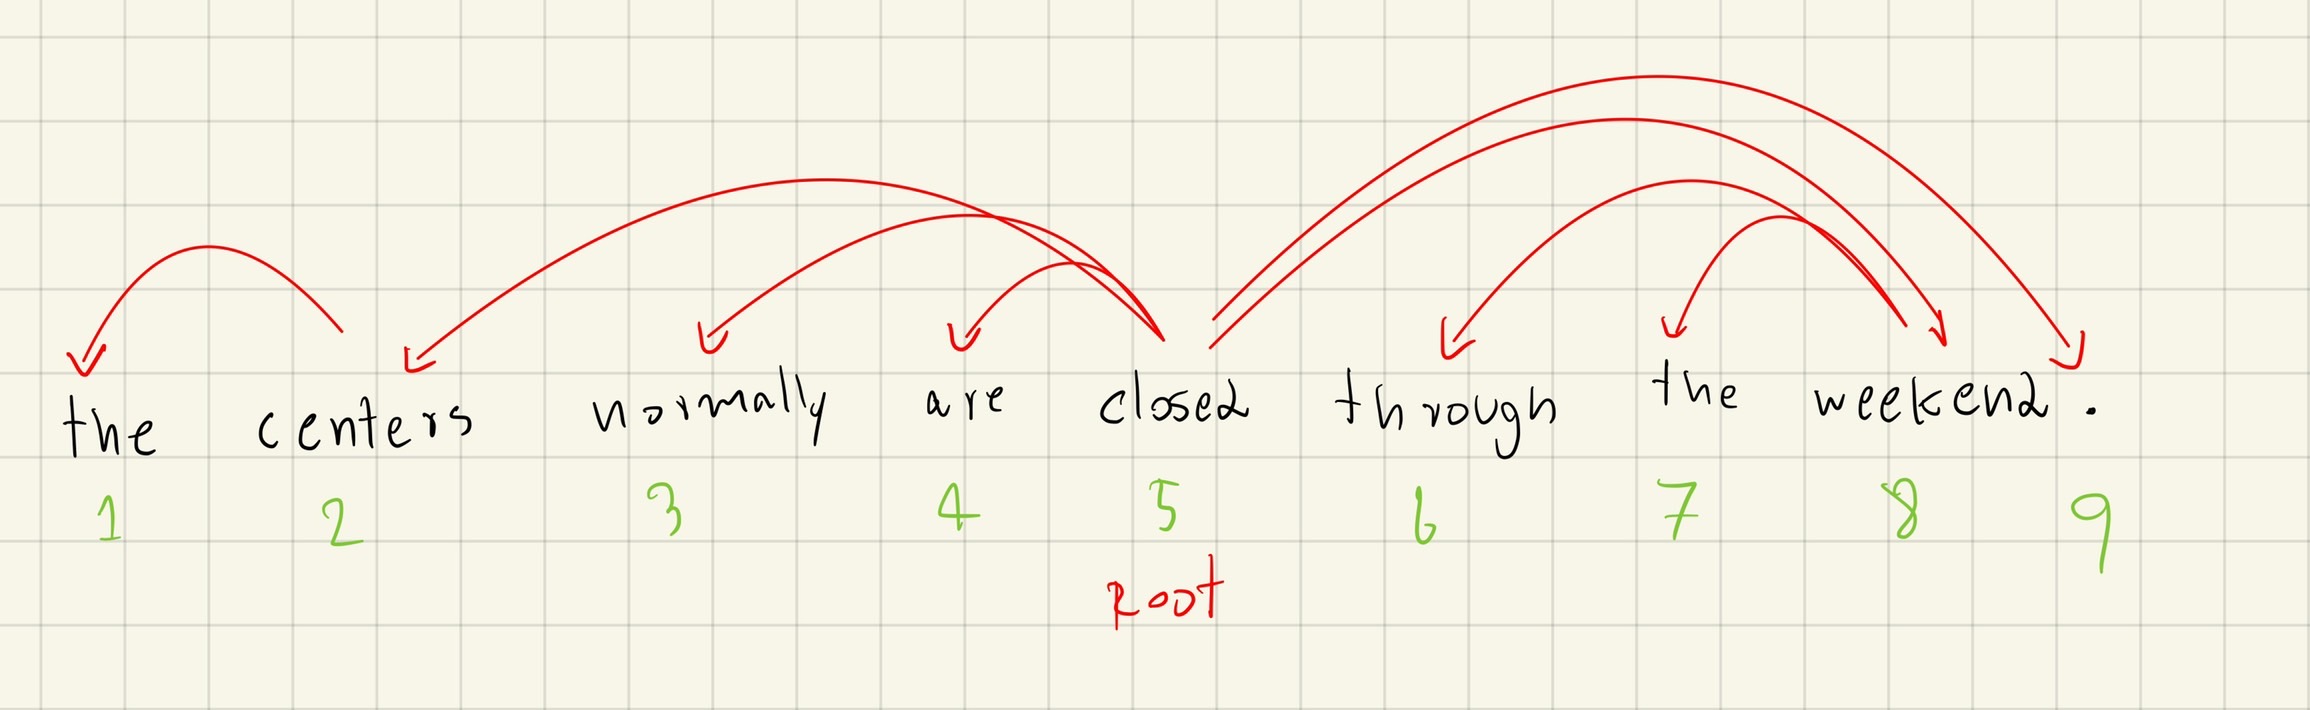 the centers normally are closed through the weekend.
1 2 3 4 5 6 7 8 9
Root